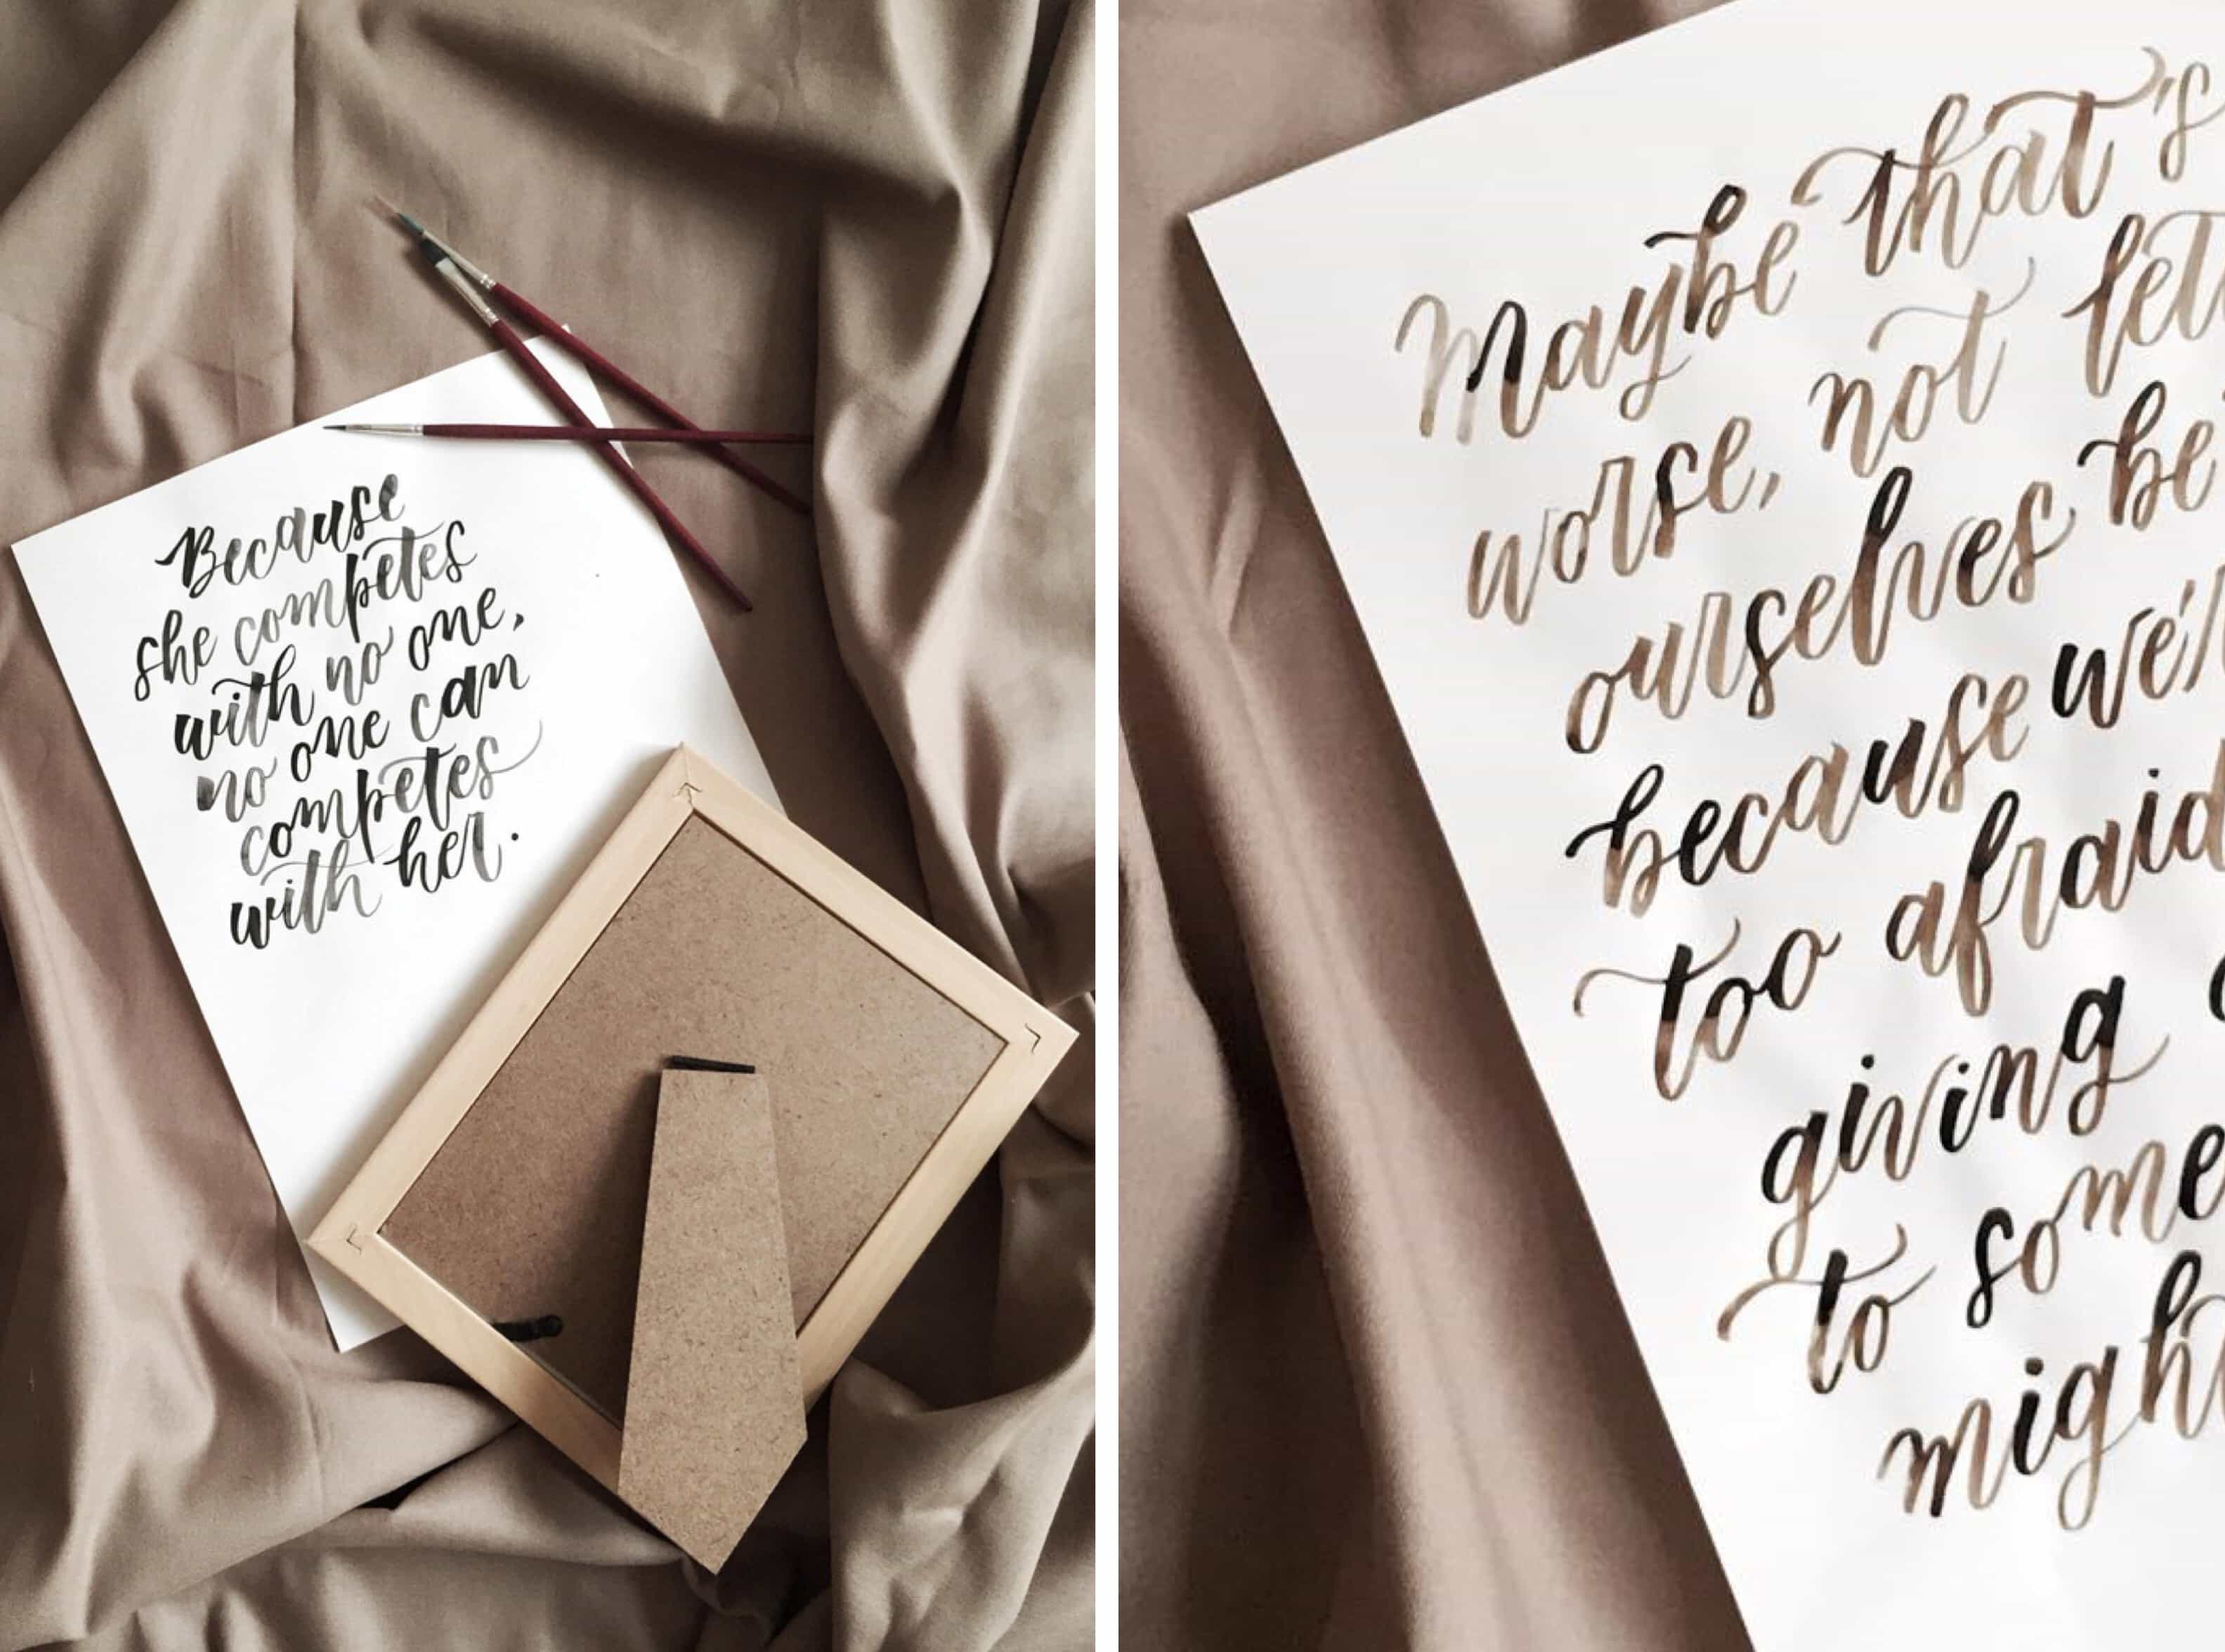 Because
she competes
with no one,
no one can
competes
with her.
Maybe that's
worse, not
ourselves
because
too afraid
giving
to some